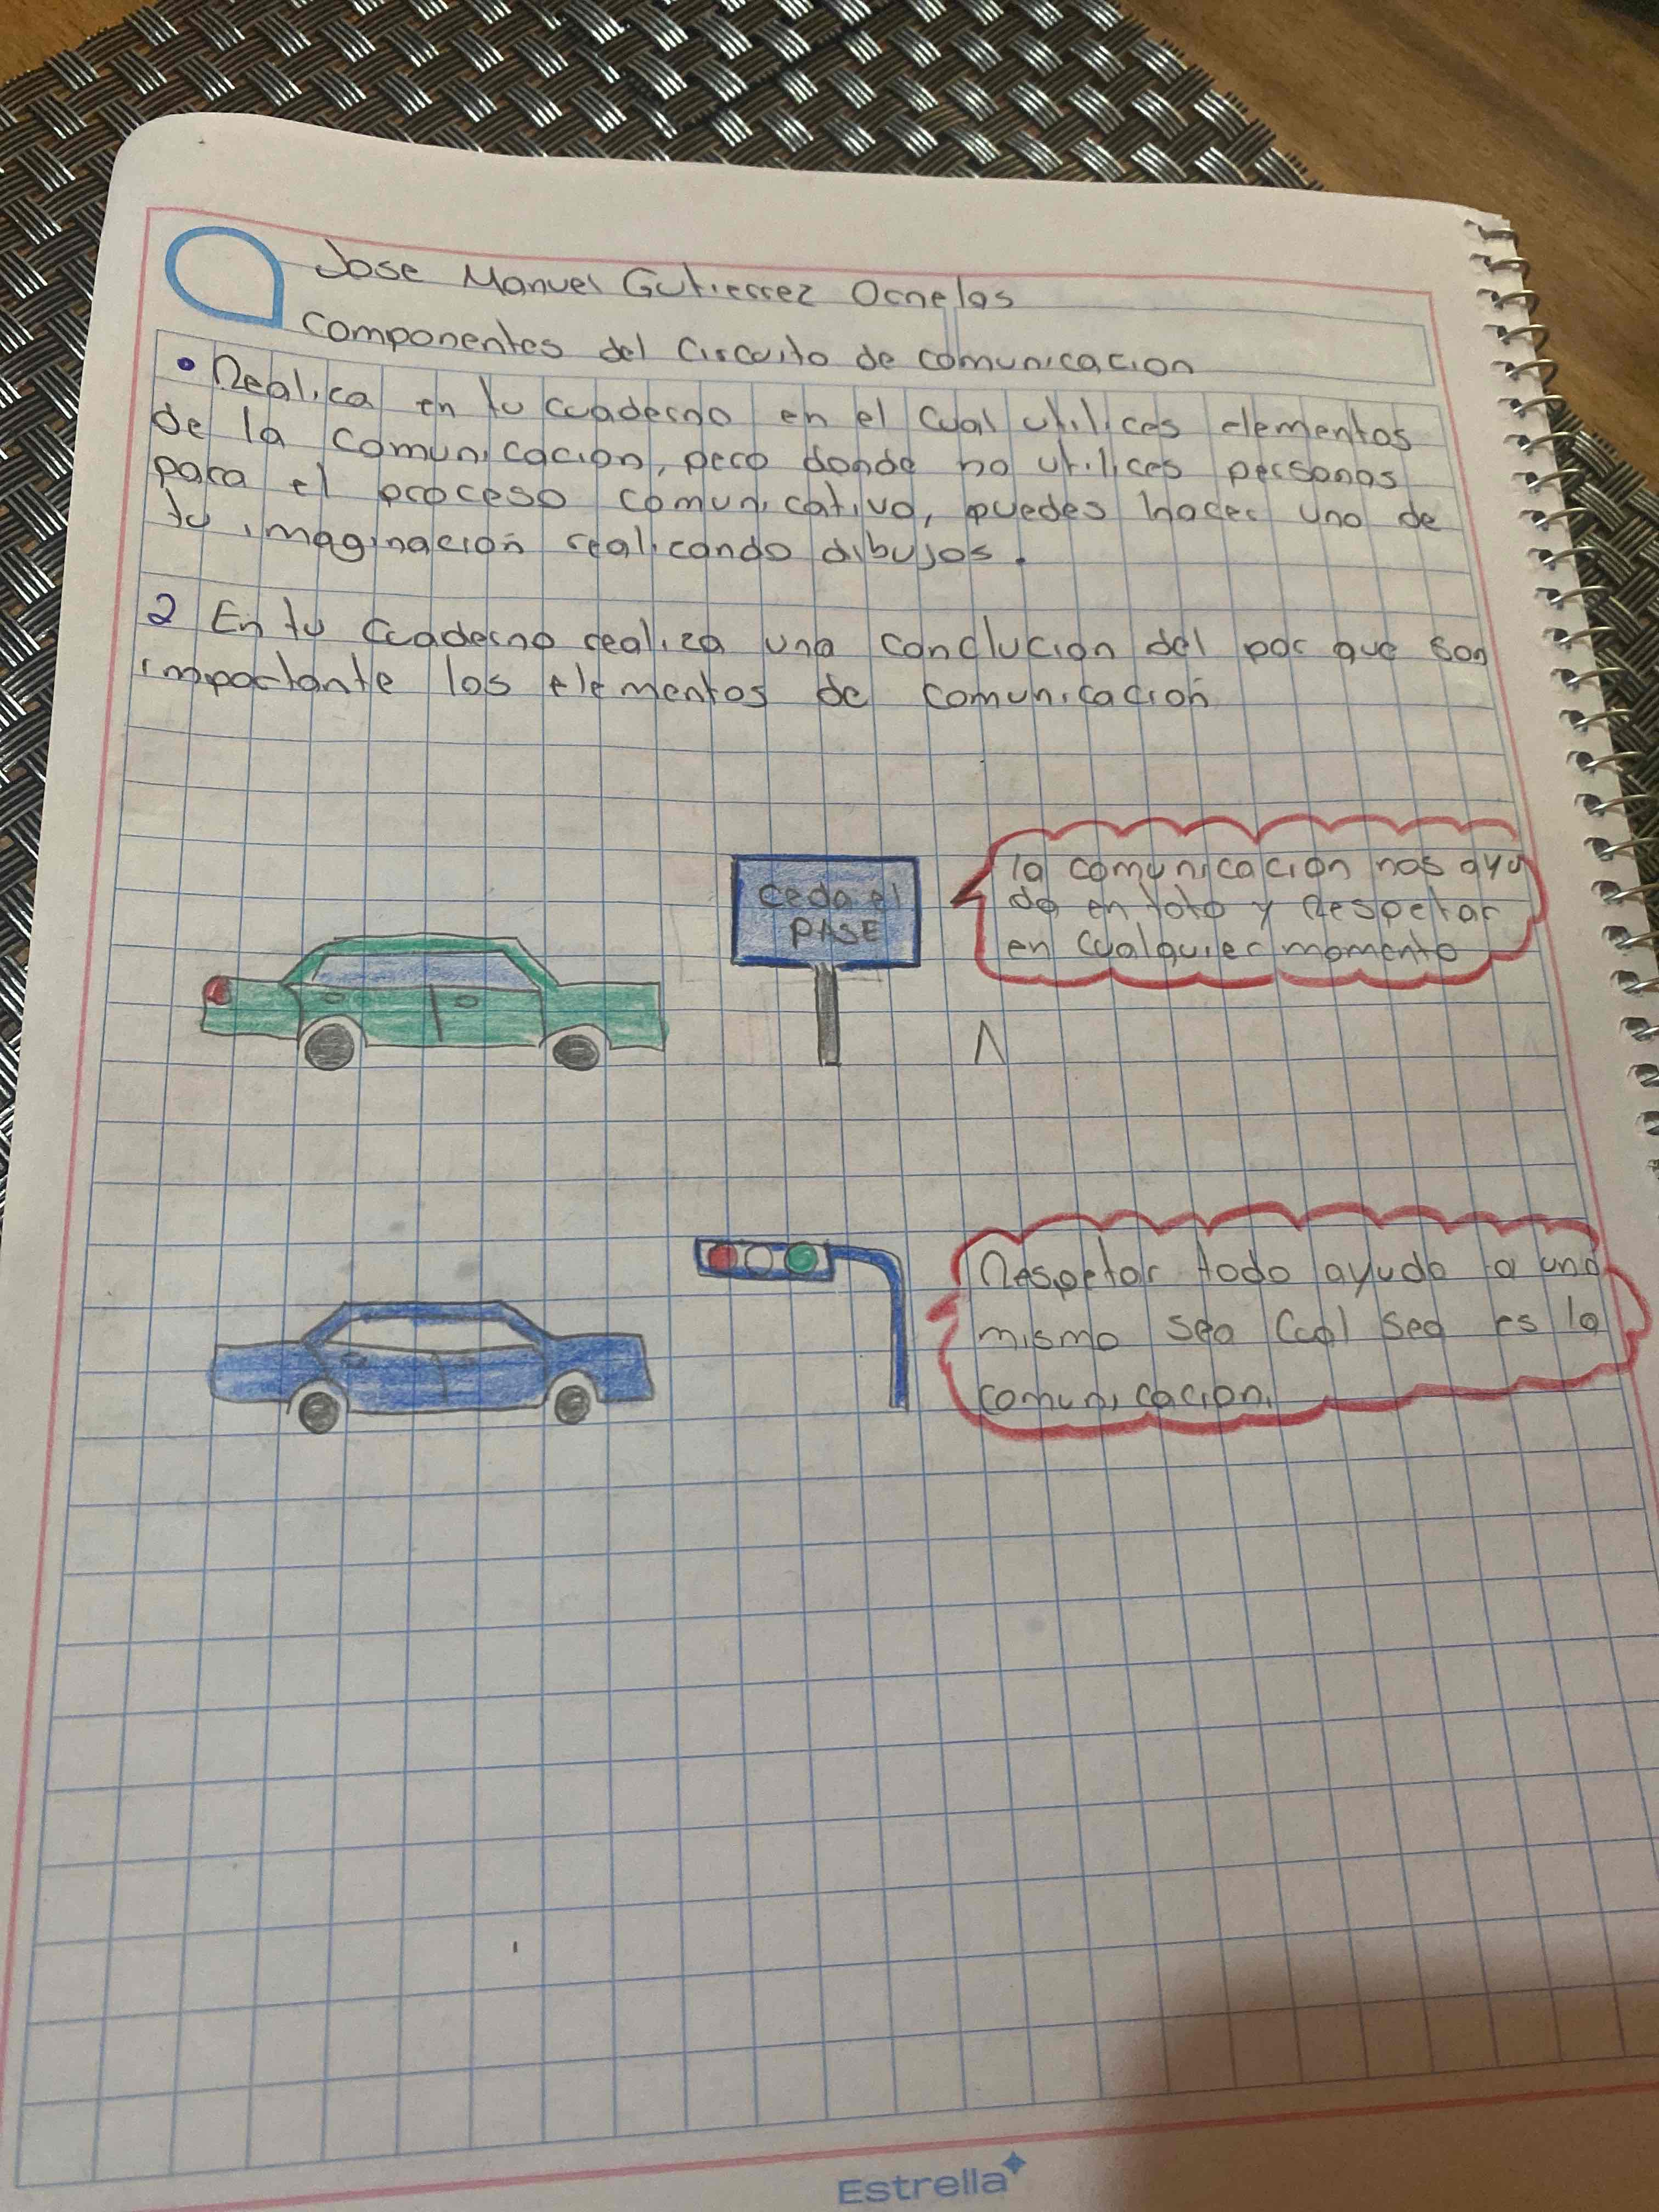 Jose Manuel Gutierrez Ornelas
Componentes del Circuito de comunicacion
• Realica en tu cuaderno en el cual utilices elementos
de la comunicacion, pero donde no utilices personas
para el proceso comunicativo, puedes hacer uno de
tu imaginacion realicando dibujos.
2 En tu cuaderno realiza una conclucion del por que son
importante los elementos de comunicacion
Ceda el
PASE
la comunicacion nos ayu
da en toto y Respetar
en cualquier momento
Respetar todo ayuda a uno
mismo sea cual sea es la
comunicacion.
Estrella